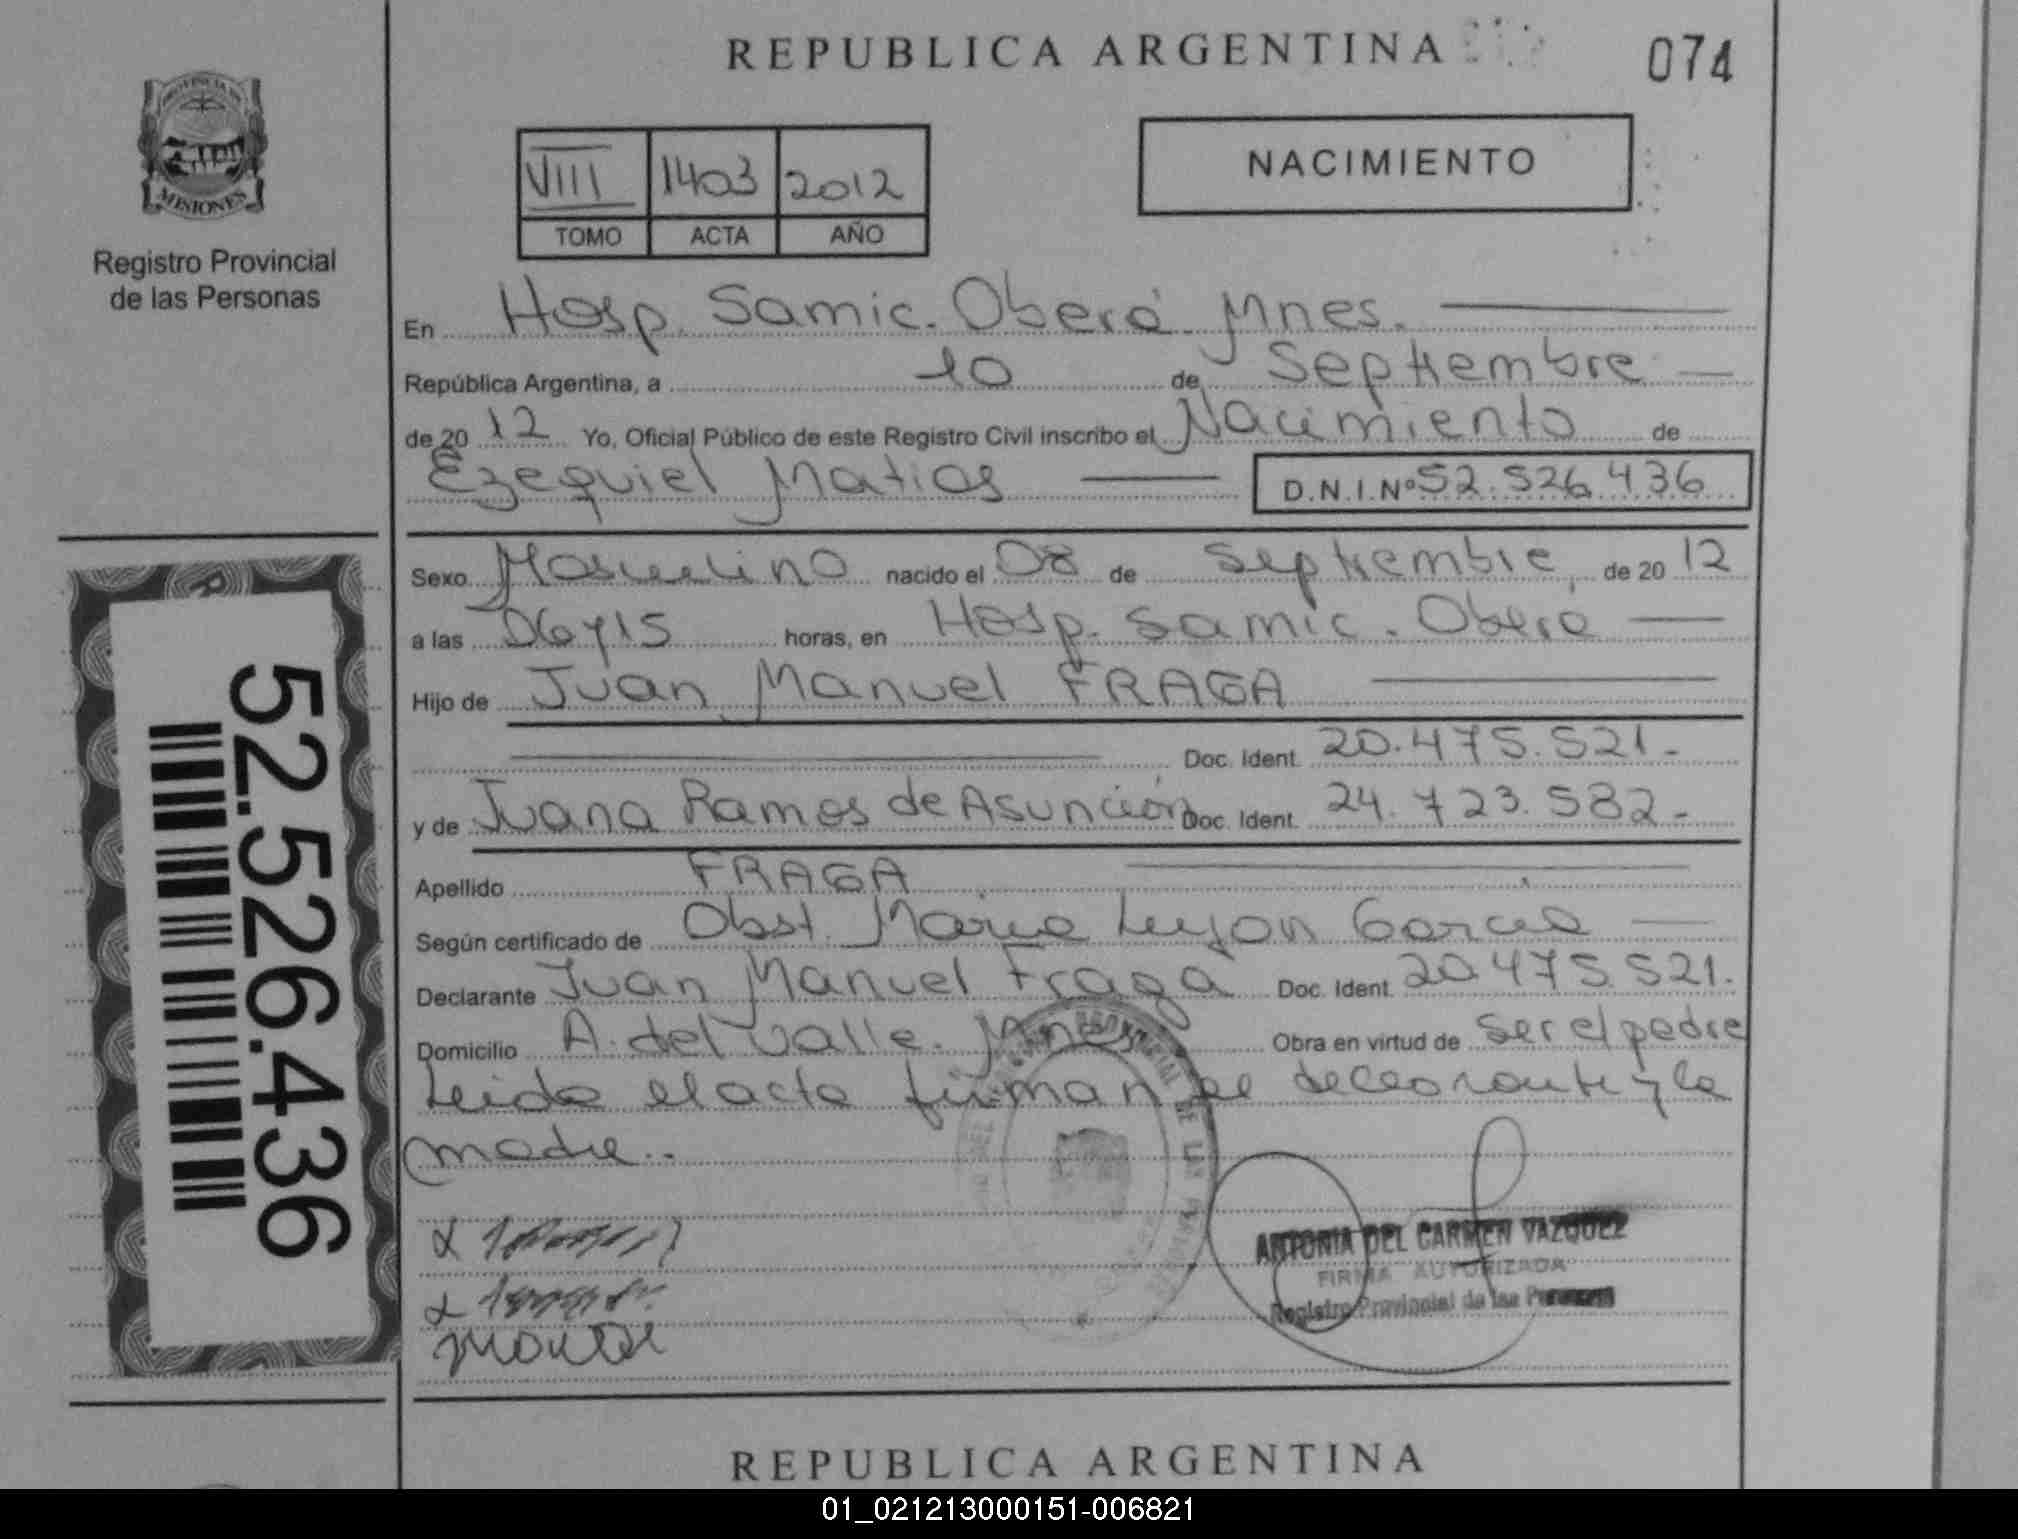 REPUBLICA ARGENTINA
074
PROVINCIA DE
MISIONES
Registro Provincial
de las Personas
VIII 1403 2012
TOMO ACTA AÑO
NACIMIENTO
En Hosp. Samic. Oberá. Mnes.
República Argentina, a 10 de Septiembre
de 20 12 Yo, Oficial Público de este Registro Civil inscribo el Nacimiento de
Ezequiel Matias D.N.I.Nº 52.526.436
Sexo Masculino nacido el 08 de Septiembre, de 20 12
a las 06 y 15 horas, en Hosp. Samic. Oberá
Hijo de Juan Manuel FRAGA
Doc. Ident. 20.475.521.-
y de Juana Ramos de Asunción Doc. Ident. 24.723.582.-
Apellido FRAGA
Según certificado de Obst. Maria Lujan Garcia
Declarante Juan Manuel Fraga Doc. Ident. 20.475.521.
Domicilio A. del Valle. Mnes Obra en virtud de ser el padre
Leida el acta firman el declarante y la
madre..
ANTONIA DEL CARMEN VAZQUEZ
FIRMA AUTORIZADA
Registro Provincial de las Personas
52.526.436
REPUBLICA ARGENTINA
01_021213000151-006821